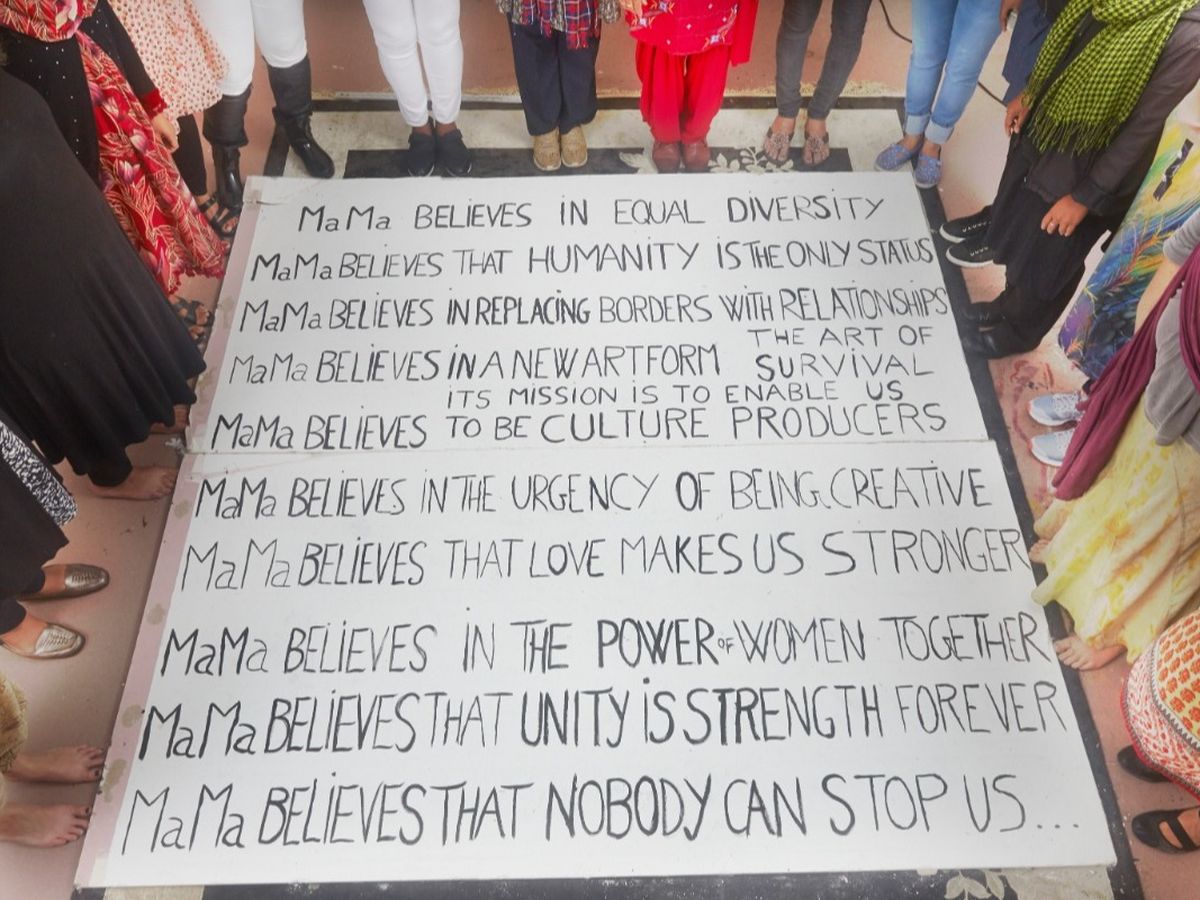 MaMa BELiEVES iN EQUAL DiVERSiTY
MaMa BELiEVES THAT HUMANiTY iS THE ONLY STATUS
MaMa BELiEVES iN REPLACiNG BORDERS WiTH RELATiONSHiPS
MaMa BELiEVES iN A NEW ART FORM THE ART OF SURViVAL
ITS MISSION IS TO ENABLE US
MaMa BELiEVES TO BE CULTURE PRODUCERS
MaMa BELiEVES iN THE URGENCY OF BEiNG CREATiVE
MaMa BELiEVES THAT LOVE MAKES US STRONGER
MaMa BELiEVES iN THE POWER OF WOMEN TOGETHER
MaMa BELiEVES THAT UNITY iS STRENGTH FOREVER
MaMa BELiEVES THAT NOBODY CAN STOP US...